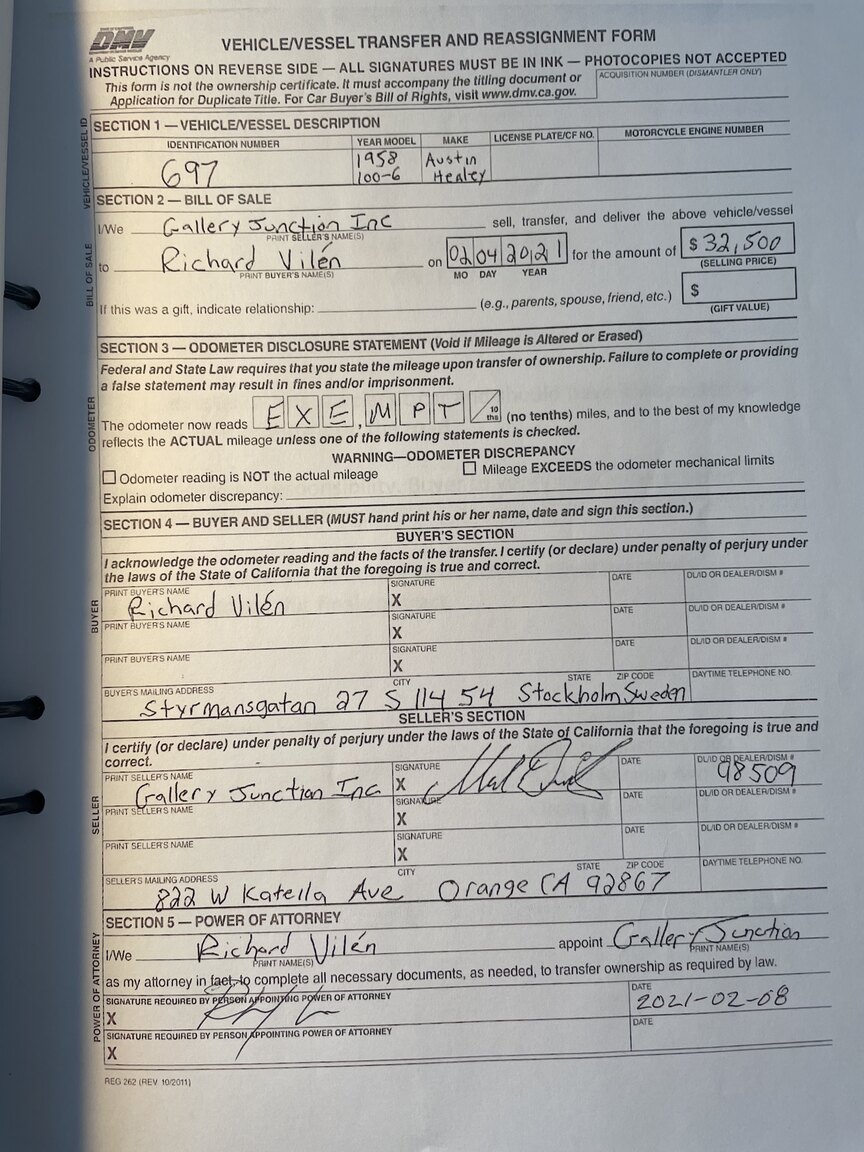 DMV
A Public Service Agency
VEHICLE/VESSEL TRANSFER AND REASSIGNMENT FORM
INSTRUCTIONS ON REVERSE SIDE — ALL SIGNATURES MUST BE IN INK — PHOTOCOPIES NOT ACCEPTED
This form is not the ownership certificate. It must accompany the titling document or
Application for Duplicate Title. For Car Buyer's Bill of Rights, visit www.dmv.ca.gov.
ACQUISITION NUMBER (DISMANTLER ONLY)
VEHICLE/VESSEL ID
SECTION 1 — VEHICLE/VESSEL DESCRIPTION
IDENTIFICATION NUMBER YEAR MODEL MAKE LICENSE PLATE/CF NO. MOTORCYCLE ENGINE NUMBER
697 1958 Austin
100-6 Healey
BILL OF SALE
SECTION 2 — BILL OF SALE
I/We Gallery Junction Inc sell, transfer, and deliver the above vehicle/vessel
PRINT SELLER'S NAME(S)
to Richard Vilén on 02 04 2021 for the amount of $ 32,500
PRINT BUYER'S NAME(S) MO DAY YEAR (SELLING PRICE)
If this was a gift, indicate relationship: (e.g., parents, spouse, friend, etc.) $
(GIFT VALUE)
ODOMETER
SECTION 3 — ODOMETER DISCLOSURE STATEMENT (Void if Mileage is Altered or Erased)
Federal and State Law requires that you state the mileage upon transfer of ownership. Failure to complete or providing
a false statement may result in fines and/or imprisonment.
The odometer now reads E X E , M P T 10 ths (no tenths) miles, and to the best of my knowledge
reflects the ACTUAL mileage unless one of the following statements is checked.
WARNING—ODOMETER DISCREPANCY
Odometer reading is NOT the actual mileage Mileage EXCEEDS the odometer mechanical limits
Explain odometer discrepancy:
SECTION 4 — BUYER AND SELLER (MUST hand print his or her name, date and sign this section.)
BUYER'S SECTION
I acknowledge the odometer reading and the facts of the transfer. I certify (or declare) under penalty of perjury under
the laws of the State of California that the foregoing is true and correct.
BUYER
PRINT BUYER'S NAME SIGNATURE DATE DL/ID OR DEALER/DISM #
Richard Vilén X
PRINT BUYER'S NAME SIGNATURE DATE DL/ID OR DEALER/DISM #
X
PRINT BUYER'S NAME SIGNATURE DATE DL/ID OR DEALER/DISM #
X
BUYER'S MAILING ADDRESS CITY STATE ZIP CODE DAYTIME TELEPHONE NO.
Styrmansgatan 27 S 114 54 Stockholm, Sweden
SELLER'S SECTION
I certify (or declare) under penalty of perjury under the laws of the State of California that the foregoing is true and
correct.
SELLER
PRINT SELLER'S NAME SIGNATURE DATE DL/ID OR DEALER/DISM #
Gallery Junction Inc X 98509
PRINT SELLER'S NAME SIGNATURE DATE DL/ID OR DEALER/DISM #
X
PRINT SELLER'S NAME SIGNATURE DATE DL/ID OR DEALER/DISM #
X
SELLER'S MAILING ADDRESS CITY STATE ZIP CODE DAYTIME TELEPHONE NO.
822 W Katella Ave Orange CA 92867
POWER OF ATTORNEY
SECTION 5 — POWER OF ATTORNEY
I/We Richard Vilén appoint Gallery Junction
PRINT NAME(S) PRINT NAME(S)
as my attorney in fact, to complete all necessary documents, as needed, to transfer ownership as required by law.
SIGNATURE REQUIRED BY PERSON APPOINTING POWER OF ATTORNEY DATE
X 2021-02-08
SIGNATURE REQUIRED BY PERSON APPOINTING POWER OF ATTORNEY DATE
X
REG 262 (REV 10/2011)